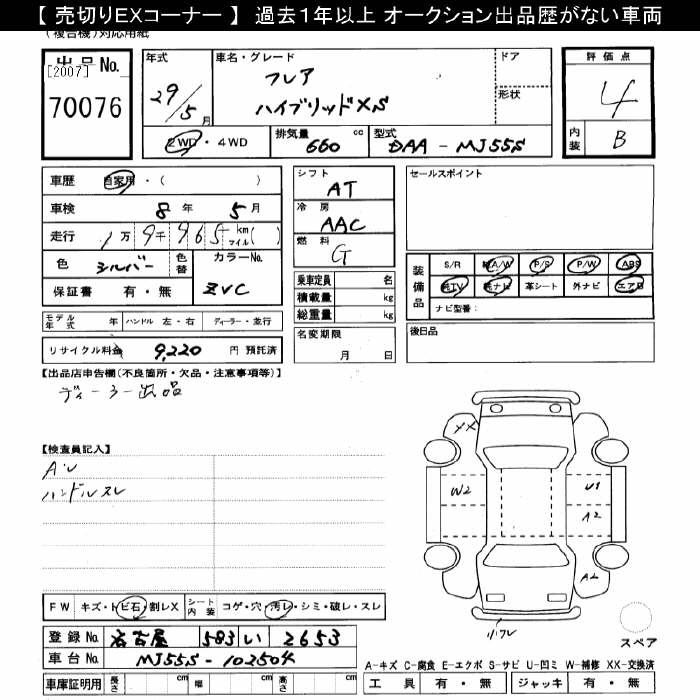 【 売切りEXコーナー 】 過去1年以上 オークション出品歴がない車両
(複合機)対応用紙
出品 No.
[2007]
70076
年式
29/5月
車名・グレード
フレア
ハイブリッドXS
ドア
形状
評価点
4
内装
B
2WD・4WD
排気量
660 cc
型式
DAA - MJ55S
車歴 自家用・( )
車検 8年 5月
走行 1万9千965 km マイル( )
色 シルバー 色替 カラーNo. ZVC
保証書 有・無
モデル年式 年 ハンドル 左・右 ディーラー・並行
リサイクル料金 9,220 円 預託済
シフト
AT
冷房
AAC
燃料
G
乗車定員 名
積載量 kg
総重量 kg
名変期限
月 日
セールスポイント
装備品
S/R 純A/W P/S P/W ABS
純TV 純ナビ 革シート 外ナビ エアB
ナビ型番:
後日品
【出品店申告欄(不良箇所・欠品・注意事項等)】
ディーラー出品
【検査員記入】
ハンドルスレ
XX
W2
U1
A2
A2
スペア
FW キズ・トビ石・割レX シート内装 コゲ・穴・汚レ・シミ・破レ・スレ
登録 No. 名古屋 583 い 2653
車台 No. MJ55S-102504
車庫証明用 長さ cm 幅 cm 高さ cm
A-キズ C-腐食 E-エクボ S-サビ U-凹ミ W-補修 XX-交換済
工具 有・無 ジャッキ 有・無